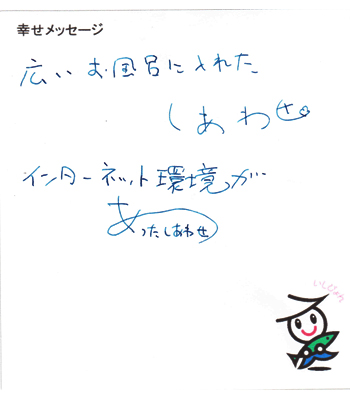 幸せメッセージ
広いお風呂に入れた
しあわせ
インターネット環境が…
あったしあわせ